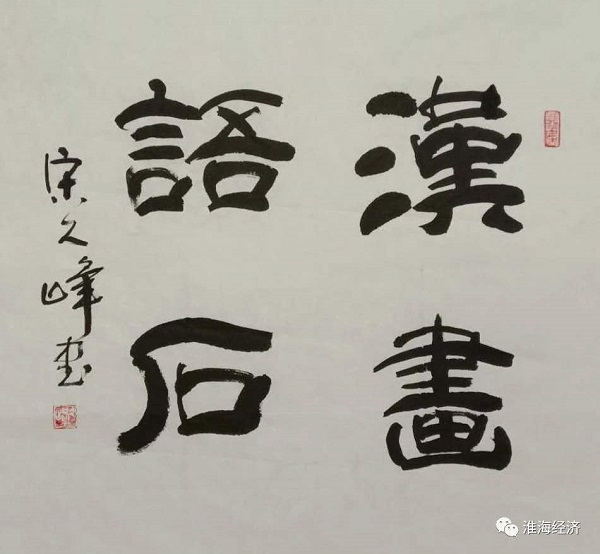 漢畫
語石
宋久峰书
淮海经济